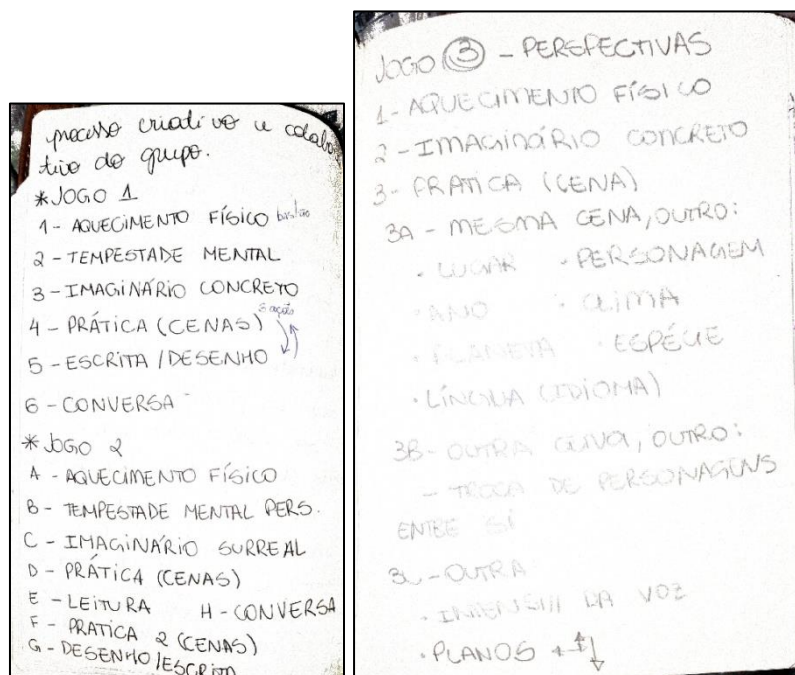 processo criativo e colabo
tivo do grupo.
* JOGO 1
1 - AQUECIMENTO FÍSICO
2 - TEMPESTADE MENTAL
3 - IMAGINÁRIO CONCRETO
4 - PRÁTICA (CENAS)
5 - ESCRITA / DESENHO
6 - CONVERSA
* JOGO 2
A - AQUECIMENTO FÍSICO
B - TEMPESTADE MENTAL PERS.
C - IMAGINÁRIO SURREAL
D - PRÁTICA (CENAS)
E - LEITURA H - CONVERSA
F - PRATICA 2 (CENAS)
G - DESENHO/ESCRITA
JOGO 3 - PERSPECTIVAS
1 - AQUECIMENTO FÍSICO
2 - IMAGINÁRIO CONCRETO
3 - PRATICA (CENA)
3A - MESMA CENA, OUTRO:
· LUGAR · PERSONAGEM
· ANO · CLIMA
· PLANETA · ESPÉCIE
· LÍNGUA (IDIOMA)
3B - OUTRA CENA, OUTRO:
- TROCA DE PERSONAGENS
ENTRE SÍ
3C - OUTRA
· DA VOZ
· PLANOS